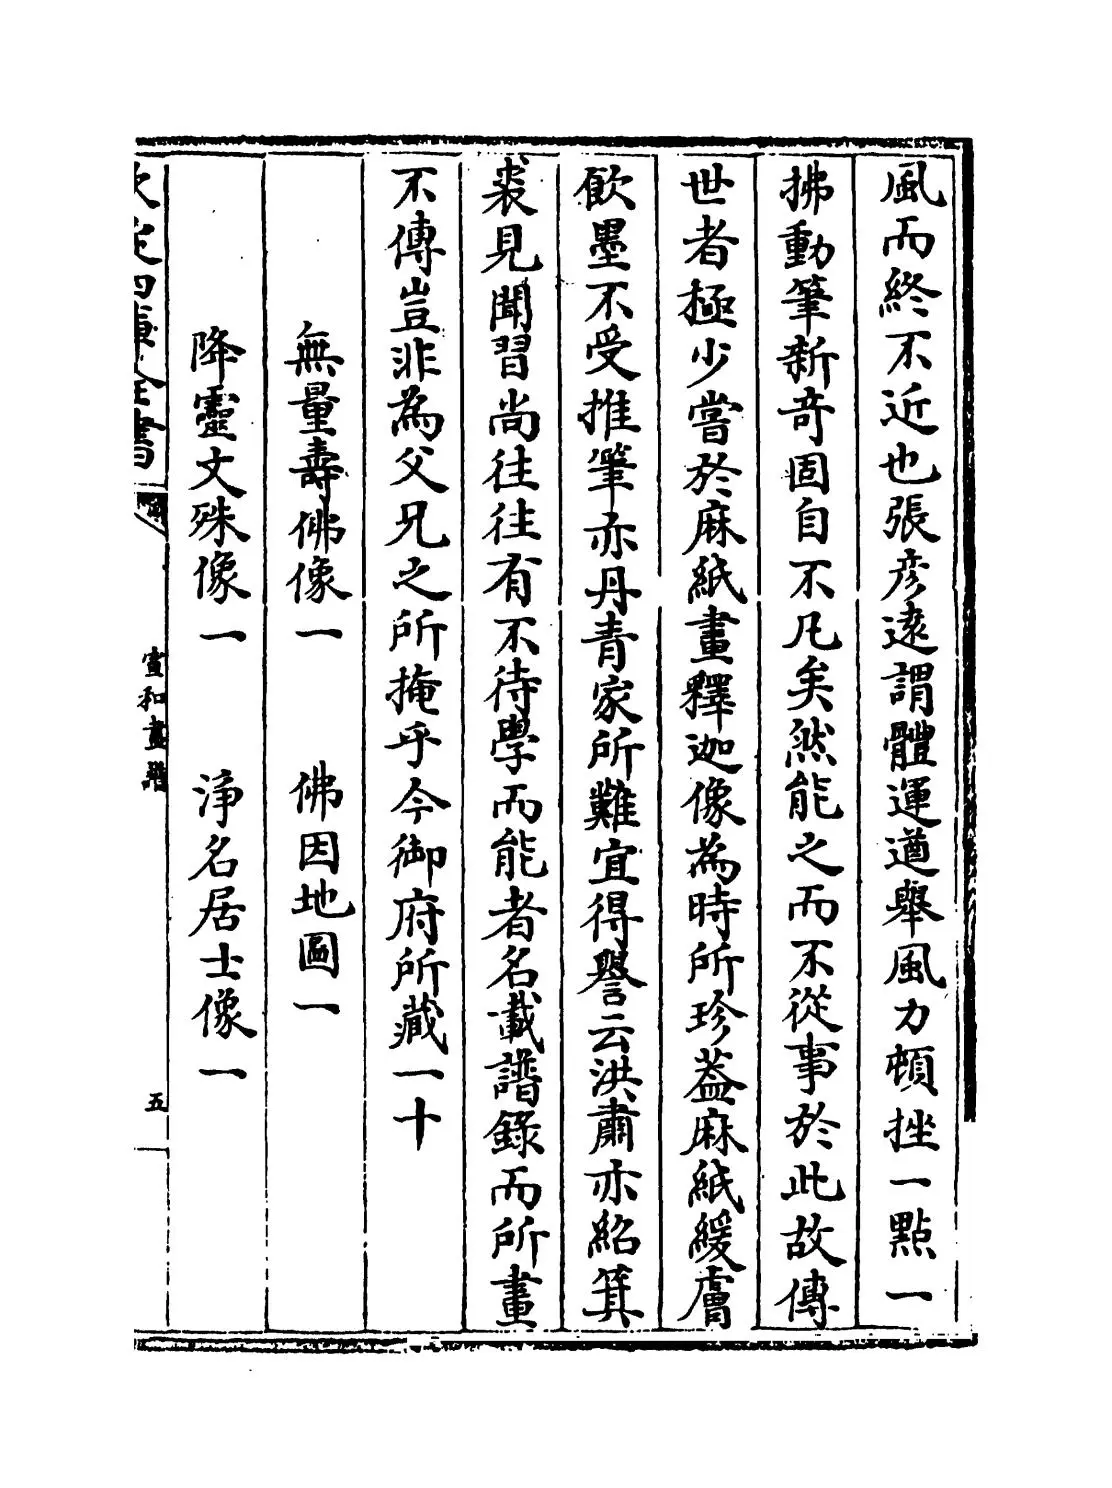 風而終不近也張彦逺謂體運遒舉風力頓挫一點一
拂動筆新奇固自不凡矣然能之而不從事於此故傳
世者極少嘗於麻紙畫釋迦像為時所珍葢麻紙緩膚
飲墨不受推筆亦丹青家所難宜得譽云洪肅亦紹箕
裘見聞習尚往往有不待學而能者名載譜錄而所畫
不傳豈非為父兄之所掩乎今御府所藏一十
無量壽佛像一　佛因地圖一
降靈文殊像一　淨名居士像一
欽定四庫全書
宣和畫譜
五